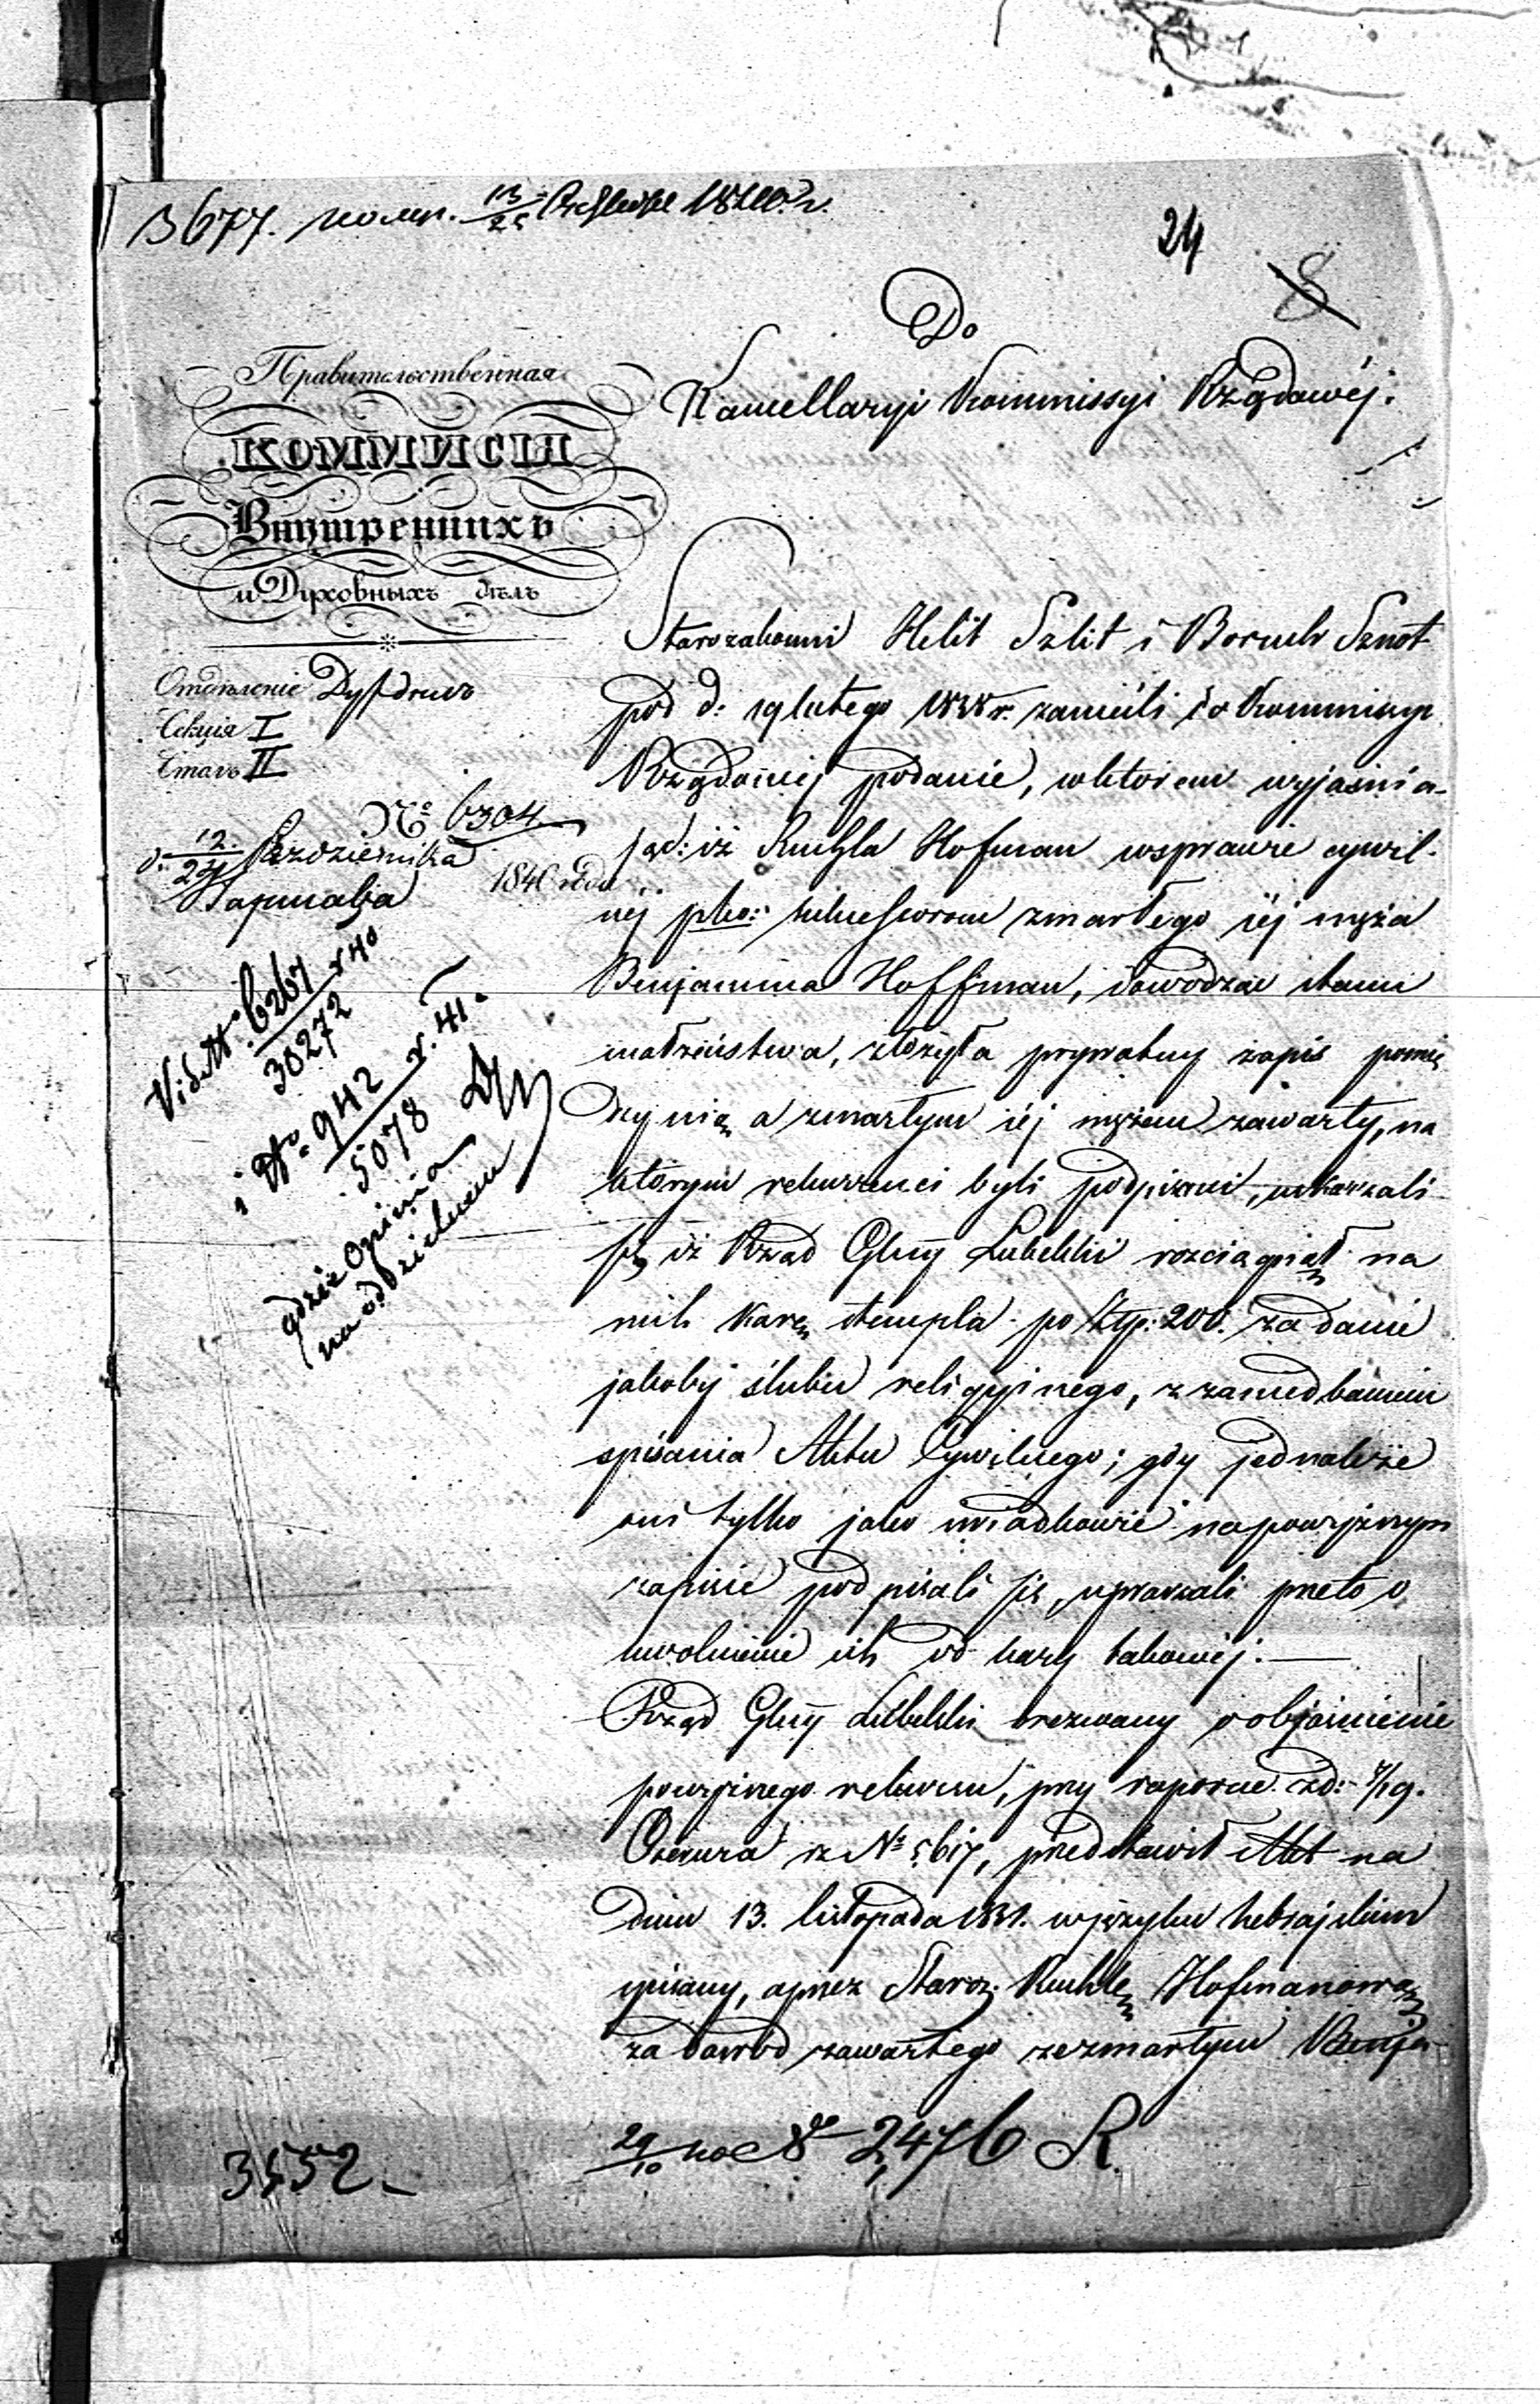 3677.
24
8
Do
Kancellaryi Kommissyi Rządowéj.
Правительственная
КОММИСІЯ
Внутреннихъ
и Духовныхъ дѣлъ
Отдѣленіе
Секція I
Столъ II
№ 6304
d: 12/24 Października
1840 года
Warszawa
Vide № 6267 r 40
30272
i №. 942 r. 41.
5078
gdzie Opinia
na oddzielnem
Starozakonni Helit Szlit i Boruch Sznot
pod d: 19 lutego 1838 r. zanieśli do Kommissyi
Rządowej podanie, w którem wyjaśnia-
jąc: iż Ruchla Hofman w sprawie cywil-
néj pko: sukcessorom zmarłego iéj męża
Benjamina Hoffman, dowodząc stanu
małżeństwa, złożyła prywatny zapis pomię
dzy nią a zmarłym iéj mężem zawarty, na
którym rekurenci byli podpisani, uskarzali
się iż Rząd Glny Lubelski rozciągnął na
nich karę stempla po Złp: 200. za danie
jakoby ślubu religyjnego, z zaniedbaniem
spisania Aktu Cywilnego; gdy jednakże
oni tylko jako świadkowie na powyższym
zapisie podpisali się, upraszali przeto o
uwolnienie ich od kary takowéj. —
Rząd Glny Lubelski wezwany o objaśnienie
powyższego rekursu, przy raporcie z d: 7/19.
Czerwca r. z № 5617, przedstawił Akt na
dniu 13. listopada 1831. w języku hebrajskim
spisany, a przez Staroz. Ruchlę Hofmanową
za dowód zawartego ze zmarłym Benja-
3552.
29/10 2476 R